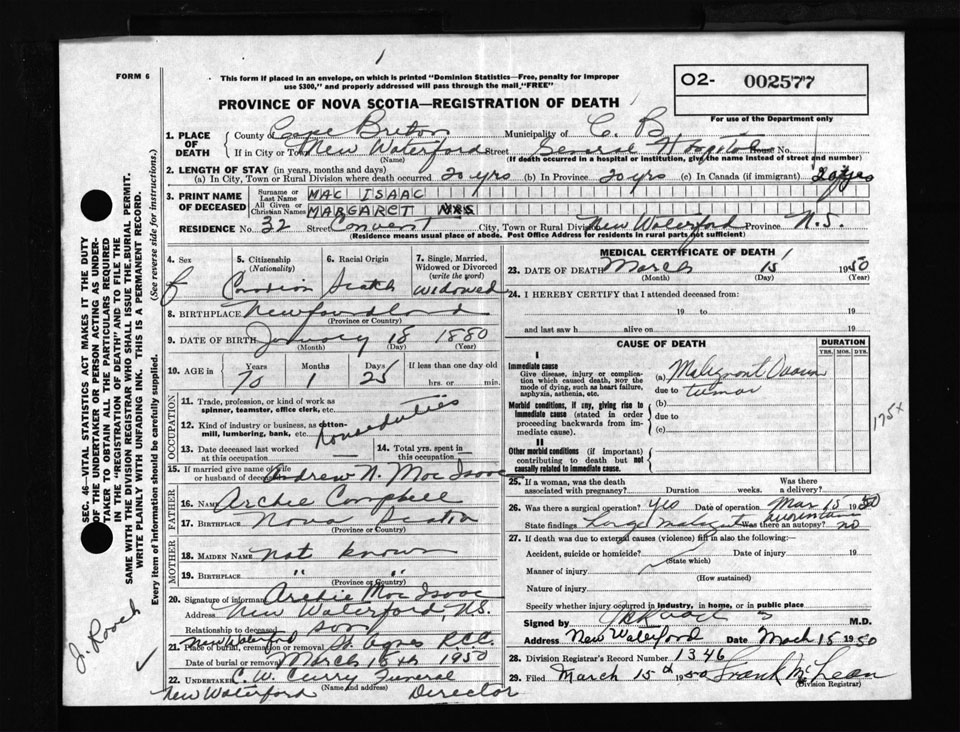 FORM 6
This form if placed in an envelope, on which is printed "Dominion Statistics—Free, penalty for improper
use $300," and properly addressed will pass through the mail "FREE"
O2- 002577
For use of the Department only
PROVINCE OF NOVA SCOTIA—REGISTRATION OF DEATH
1. PLACE OF DEATH
County of Cape Breton Municipality of C. B.
If in City or Town New Waterford Street General Hospital House No.
(Name) (If death occurred in a hospital or institution, give the name instead of street and number)
2. LENGTH OF STAY (in years, months and days)
(a) In City, Town or Rural Division where death occurred 20 yrs (b) In Province 20 yrs (c) In Canada (if immigrant) 20 yrs
3. PRINT NAME OF DECEASED
Surname or Last Name MAC ISAAC
All Given or Christian Names MARGARET MRS
RESIDENCE No. 32 Street Convent City, Town or Rural Division New Waterford Province N.S.
(Residence means usual place of abode. Post Office Address for residents in rural parts not sufficient)
4. Sex 5. Citizenship (Nationality) 6. Racial Origin 7. Single, Married, Widowed or Divorced (write the word)
f Canadian Scotch widowed
8. BIRTHPLACE Newfoundland
(Province or Country)
9. DATE OF BIRTH January 18 1880
(Month) (Day) (Year)
10. AGE in Years Months Days If less than one day old
70 1 25 hrs. or min.
OCCUPATION
11. Trade, profession, or kind of work as
spinner, teamster, office clerk, etc.
12. Kind of industry or business, as cotton-
mill, lumbering, bank, etc. house duties
13. Date deceased last worked at this occupation 14. Total yrs. spent in this occupation
15. If married give name of wife
or husband of deceased Andrew N. Mac Isaac
FATHER
16. Name Archie Campbell
17. Birthplace Nova Scotia
MOTHER
18. Maiden Name not known
19. Birthplace " "
(Province or Country)
20. Signature of informant Archie Mac Isaac
Address New Waterford, N.S.
Relationship to deceased son
21. Place of burial, cremation or removal New Waterford St. Agnes R.C.C.
Date of burial or removal March 16th 1950
22. UNDERTAKER C. W. Curry Funeral
(Name and address)
New Waterford Director
MEDICAL CERTIFICATE OF DEATH
23. DATE OF DEATH March 15 1950
(Month) (Day) (Year)
24. I HEREBY CERTIFY that I attended deceased from:
19 to 19
and last saw h alive on 19
CAUSE OF DEATH DURATION
YRS. MOS. DYS.
I
Immediate cause
Give disease, injury or complica-
tion which caused death, NOT the
mode of dying, such as heart failure,
asphyxia, asthenia, etc.
(a) Malignant Ovarian
due to tumor
Morbid conditions, if any, giving rise to
immediate cause (stated in order
proceeding backwards from im-
mediate cause).
(b)
due to
(c)
II
Other morbid conditions (if important)
contributing to death but not
causally related to immediate cause.
175x
25. If a woman, was the death
associated with pregnancy? Duration weeks. Was there a delivery?
26. Was there a surgical operation? yes Date of operation Mar 15 1950
State findings Large malignant Was there an autopsy? no
27. If death was due to external causes (violence) fill in also the following:
Accident, suicide or homicide? Date of injury 19
(State which)
Manner of injury
(How sustained)
Nature of injury
Specify whether injury occurred in industry, in home, or in public place
Signed by M.D.
Address New Waterford Date March 15 1950
28. Division Registrar's Record Number 1346
29. Filed March 15th 1950 Frank McLean
(Division Registrar)
SEC. 46—VITAL STATISTICS ACT MAKES IT THE DUTY
OF THE UNDERTAKER OR PERSON ACTING AS UNDER-
TAKER TO OBTAIN ALL THE PARTICULARS REQUIRED
IN THE "REGISTRATION OF DEATH" AND TO FILE THE
SAME WITH THE DIVISION REGISTRAR WHO SHALL ISSUE THE BURIAL PERMIT.
WRITE PLAINLY WITH UNFADING INK. THIS IS A PERMANENT RECORD.
Every item of information should be carefully supplied. (See reverse side for instructions.)
J. Roach